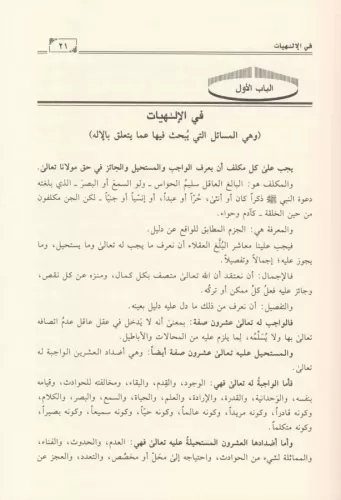 في الإلٰهيات
٢١
الباب الأول
في الإلٰهيات
(وهي المسائل التي يُبحث فيها عما يتعلق بالإلٰه)
يجب على كل مكلف أن يعرف الواجب والمستحيل والجائز في حق مولانا تعالىٰ.
والمكلف هو: البالغ العاقل سليمُ الحواس ـ ولو السمعَ أو البصرَ ـ الذي بلغته
دعوة النبي ﷺ ذكراً كان أو أنثىٰ، حُرّاً أو عبداً، أو إنسيّاً أو جنيّاً ـ لكن الجن مكلفون
من حين الخلقة ـ كآدم وحواء.
والمعرفة هي: الجزم المطابق للواقع عن دليل.
فيجب علينا معاشر البُلَّغ العقلاء أن نعرف ما يجب له تعالىٰ وما يستحيل، وما
يجوز عليه؛ إجمالاً وتفصيلاً.
فالإجمال: أن نعتقد أن الله تعالىٰ متصف بكل كمال، ومنزه عن كل نقص،
وجائز عليه فعلُ كلِّ ممكن أو تركُه.
والتفصيل: أن نعرف من ذلك ما دل عليه دليل بعينه.
فالواجب له تعالىٰ عشرون صفة: بمعنىٰ أنه لا يُدخل في عقل عاقل عدمُ اتصافه
تعالىٰ بها ولا يُسَلِّمُه، لِما يلزم عليه من المحالات والأباطيل.
والمستحيل عليه تعالىٰ عشرون صفة أيضاً: وهي أضداد العشرين الواجبة له
تعالىٰ.
فأما الواجبةُ له تعالىٰ فهي: الوجود، والقِدم، والبقاء، ومخالفته للحوادث، وقيامه
بنفسه، والوَحدانية، والقدرة، والإرادة، والعلم، والحياة، والسمع، والبصر، والكلام،
وكونه قادراً، وكونه مريداً، وكونه عالماً، وكونه حيّاً، وكونه سميعاً، وكونه بصيراً،
وكونه متكلماً.
وأما أضدادها العشرون المستحيلةُ عليه تعالىٰ فهي: العدم، والحدوث، والفناء،
والمماثلة لشيء من الحوادث، واحتياجه إلىٰ محَل أو مخصّص، والتعدد، والعجز عن